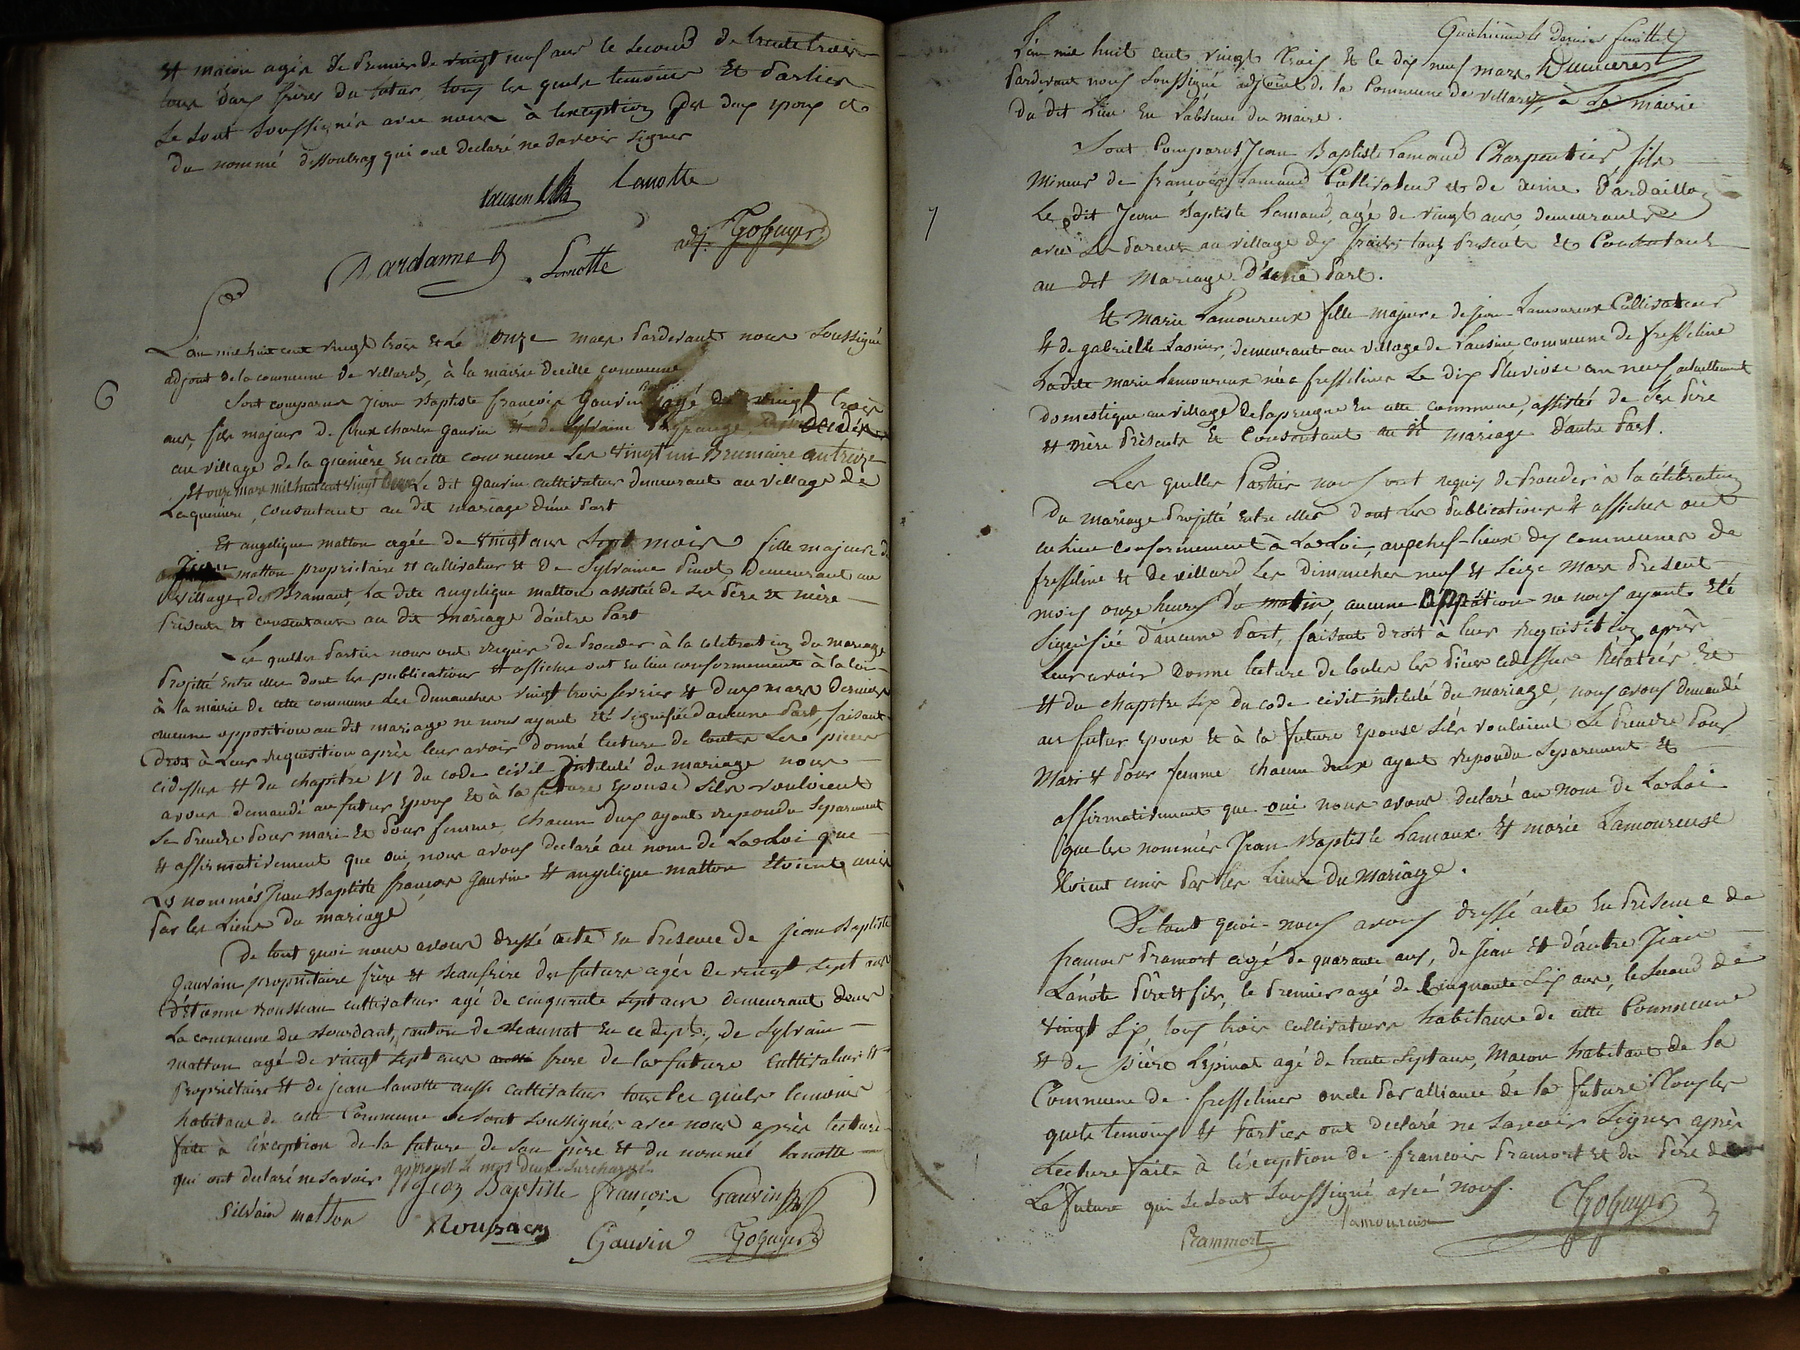 et maçon agés le premier de vingt neuf ans le second de trente trois
tous deux frères du futur, tous les quels temoins et parties
se sont soussignés avec nous à l'exception des deux epoux et
du nommé qui ont declaré ne savoir signer
Lanotte
Dardanne Lanotte adj. Goguyer
6
L'an mil huit cent vingt trois et le onze mars pardevant nous soussigné
adjoint de la commune de villard, à la mairie de cette commune
Sont comparus Jean Baptiste françois Gauvin agé de vingt trois
ans, fils majeur de feux charles gauvin et de Sylvaine
au village de la quenière en cette commune les vingt un Brumaire an treize
et onze mars mil huit cent vingt le dit gauvin cultivateur demeurant au village de
Laquenière, consentant au dit mariage d'une part
Et angelique matton agée de vingt ans sept mois fille majeure de
matton propriétaire et cultivateur et de Sylvaine Pinot, demeurant au
village de Bramant, la dite angelique matton assistée de ses père et mère
présents et consentans au dit mariage d'autre part
Les quelles parties nous ont requis de proceder à la celebration du mariage
projetté entre elles dont les publications et affiches ont eu lieu conformement à la loi
à la mairie de cette commune les dimanches vingt trois fevrier et deux mars dernier
aucune oppotition au dit mariage ne nous ayant été signifiée d'aucune part, faisant
droit à leur requisition après leur avoir donné lecture de toutes les pieces
cidessus et du chapitre VI du code civil intitulé du mariage nous
avons demandé au futur epoux et à la future epouse s'ils vouloient
se prendre pour mari et pour femme, chacun deux ayant repondu separement
et affirmativement que oui, nous avons declaré au nom de La Loi que
Les nommés Jean Baptiste françois Gauvin et angelique matton étoient unis
par les Liens du mariage
De tout quoi nous avons dressé acte en presence de Jean Baptiste
Gauvain propriétaire frère et beaufrère du futur agés de vingt sept ans
d'étienne rousseau cultivateur agé de cinquante sept ans demeurant dans
La commune du Bourdant, canton de Beaunat en ce dept., de Sylvain
matton agé de vingt sept ans frere de la future cultivateur et
proprietaire et de jean lanotte aussi cultivateur tous les quels temoins
habitans de cette Commune se sont soussignés avec nous après lecture
faite à l'exception de la future de son père et du nommé lanotte
qui ont declaré ne savoir approuvé le mot deux surchargé
Jean Baptiste françois Gauvin
Silvain matton Rousseau Gauvin Goguyer
Quatrième & dernier feuillet
Dumieres
L'an mil huit cent vingt trois et le dix neuf mars
pardevant nous soussigné adjoint de la Commune de villard, à La mairie
du dit Lieu en l'absence du maire.
7
Sont Comparus Jean Baptiste Lamaud Charpentier, fils
mineur de françois Lamaud Cultivateur et de anne Pardaillon
Le dit Jean Baptiste Lamaud, agé de vingt ans demeurant
avec ses parens au village des fraits tous presents et Consentans
au dit Mariage d'une part.
Et Marie Lamoureux fille majeure de jean Lamoureux Cultivateur
et de gabrielle Lasnier, demeurant au village de Lausine commune de fresseline
Ladite marie Lamoureux née a fresselines Le dix Pluviose an neuf, actuellement
domestique au village de Laprugne en cette commune, assistée de ses père
et mère présents et Consentant au dt mariage d'autre part.
Les quelles Parties nous ont requis de Proceder à la célébration
du mariage projetté entre elles dont Les Publications et affiches ont
eu lieu conformement à La Loi, aux chef-lieux des communes de
fresseline et de villard Les dimanches neuf et seize mars present
mois onze heures du matin, aucune opposition ne nous ayant été
signifiée d'aucune part, faisant droit a leur requisition après
Leur avoir donné lecture de toutes les pièces cidessus relatées et
et du chapitre six du code civil intitulé du mariage, nous avons demandé
au futur epoux et à la future epouse s'ils vouloient se prendre pour
Mari et pour femme chacun deux ayant repondu separement et
affirmativement que oui nous avons declaré au nom de La Loi
que les nommés Jean Baptiste Lamaux et marie Lamoureuse
étoient unis par les Liens du Mariage.
De tout quoi nous avons dressé acte en presence de
françois Pramort agé de quarante ans, de Jean et d'autre Jean
Lanote père et fils, le premier agé de Cinquante six ans, le second de
vingt six tous trois cultivateurs habitans de cette Commune
et de pière Lépinat agé de trente sept ans, Macon habitant de la
Commune de fresselines oncle par alliance de la future Tous les
quels temoins et Parties ont declaré ne savoir signer après
Lecture faite à l'éxception de françois Pramort et du Père de
La future qui se sont soussigné avec nous.
Prammort lamoureux Goguyer